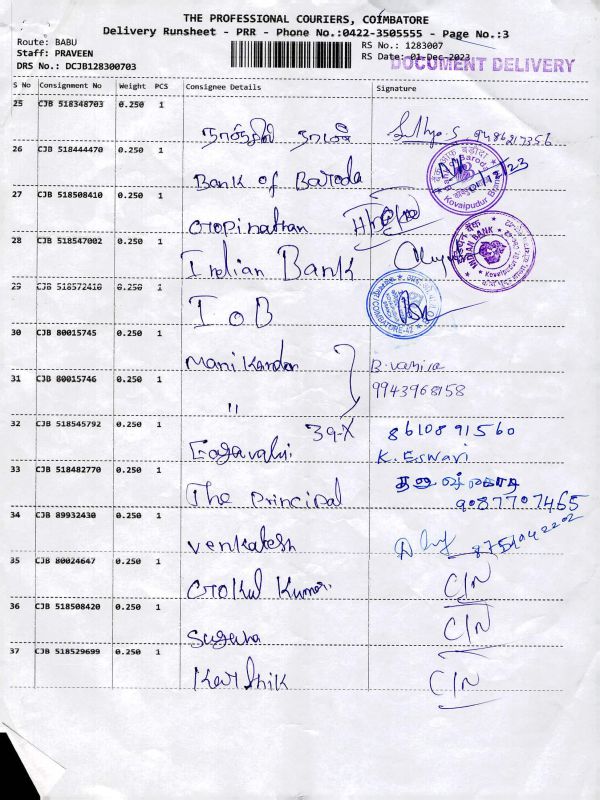 THE PROFESSIONAL COURIERS, COIMBATORE
Delivery Runsheet - PRR - Phone No.:0422-3505555 - Page No.:3
Route: BABU
RS No.: 1283007
Staff: PRAVEEN
RS Date: 01-Dec-2023
DRS No.: DCJB128300703
DOCUMENT DELIVERY
S No Consignment No Weight PCS Consignee Details Signature
25 CJB 518348703 0.250 1
26 CJB 518444470 0.250 1 Bank of Baroda
Kovaipudur 01/12/23
27 CJB 518508410 0.250 1 Gopinathan
28 CJB 518547002 0.250 1 Indian Bank
INDIAN BANK Kovaipudur
29 CJB 518572410 0.250 1 IOB
COIMBATORE-42
30 CJB 80015745 0.250 1 Manikandan
31 CJB 80015746 0.250 1 "
9943968158
32 CJB 518545792 0.250 1 39-X 8610891560
K. Eswari
33 CJB 518482770 0.250 1 The principal
9087707465
34 CJB 89932430 0.250 1 Venkatesh
35 CJB 80024647 0.250 1 Gokul Kumar. C/N
36 CJB 518508420 0.250 1 Suguna C/N
37 CJB 518529699 0.250 1 Karthik C/N